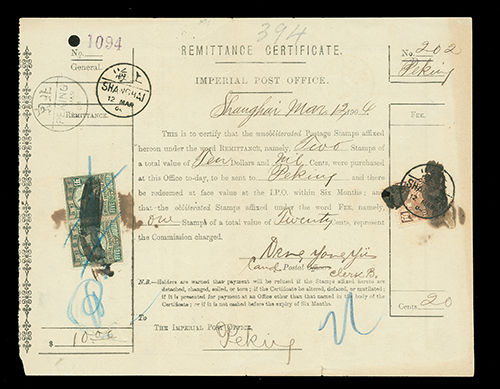 394
No. 1094
General.
REMITTANCE CERTIFICATE.
No. 202
Peking
IMPERIAL POST OFFICE.
SHANGHAI
12 MAR
04
PEKING
Shanghai Mar. 12, 1904.
REMITTANCE.
FEE.
This is to certify that the unobliterated Postage Stamps affixed
hereon under the word REMITTANCE, namely, Two Stamps of
a total value of Ten Dollars and Nil Cents, were purchased
at this Office to-day, to be sent to Peking and there
be redeemed at face value at the I.P.O. within Six Months; and
that the obliterated Stamps affixed under the word FEE, namely,
one Stamps of a total value of Twenty Cents, represent
the Commission charged.
SHANGHAI
12 MAR
Postal
Clerk B.
N.B.—Holders are warned that payment will be refused if the Stamps affixed hereto are
detached, changed, soiled, or torn; if the Certificate be altered, defaced, or mutilated;
if it is presented for payment at an Office other than that named in the body of the
Certificate; or if it is not cashed before the expiry of Six Months.
Cents, 20
To
THE IMPERIAL POST OFFICE,
Peking
$ 10.00